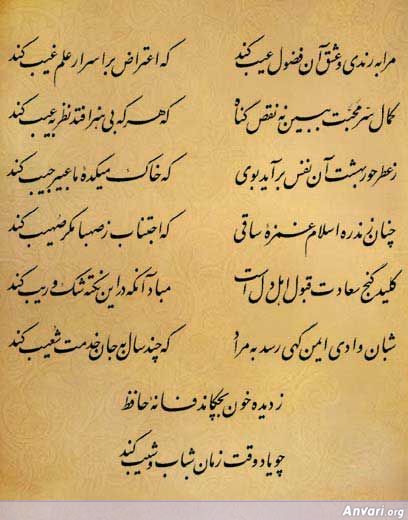 مرا به رندی و عشق آن فضول عیب کند که اعتراض بر اسرار علم غیب کند
کمال سر محبت ببین نه نقص گناه که هر که بی هنر افتد نظر به عیب کند
ز عطر حور بهشت آن نفس برآید بوی که خاک میکدهٔ ما عبیر جیب کند
چنان زند ره اسلام غمزهٔ ساقی که اجتناب ز صهبا مگر صهیب کند
کلید گنج سعادت قبول اهل دل است مباد آنکه در این نکته شک و ریب کند
شبان وادی ایمن گهی رسد به مراد که چند سال به جان خدمت شعیب کند
ز دیده خون بچکاند فسانهٔ حافظ
چو یاد وقت زمان شباب و شیب کند
Anvari.org